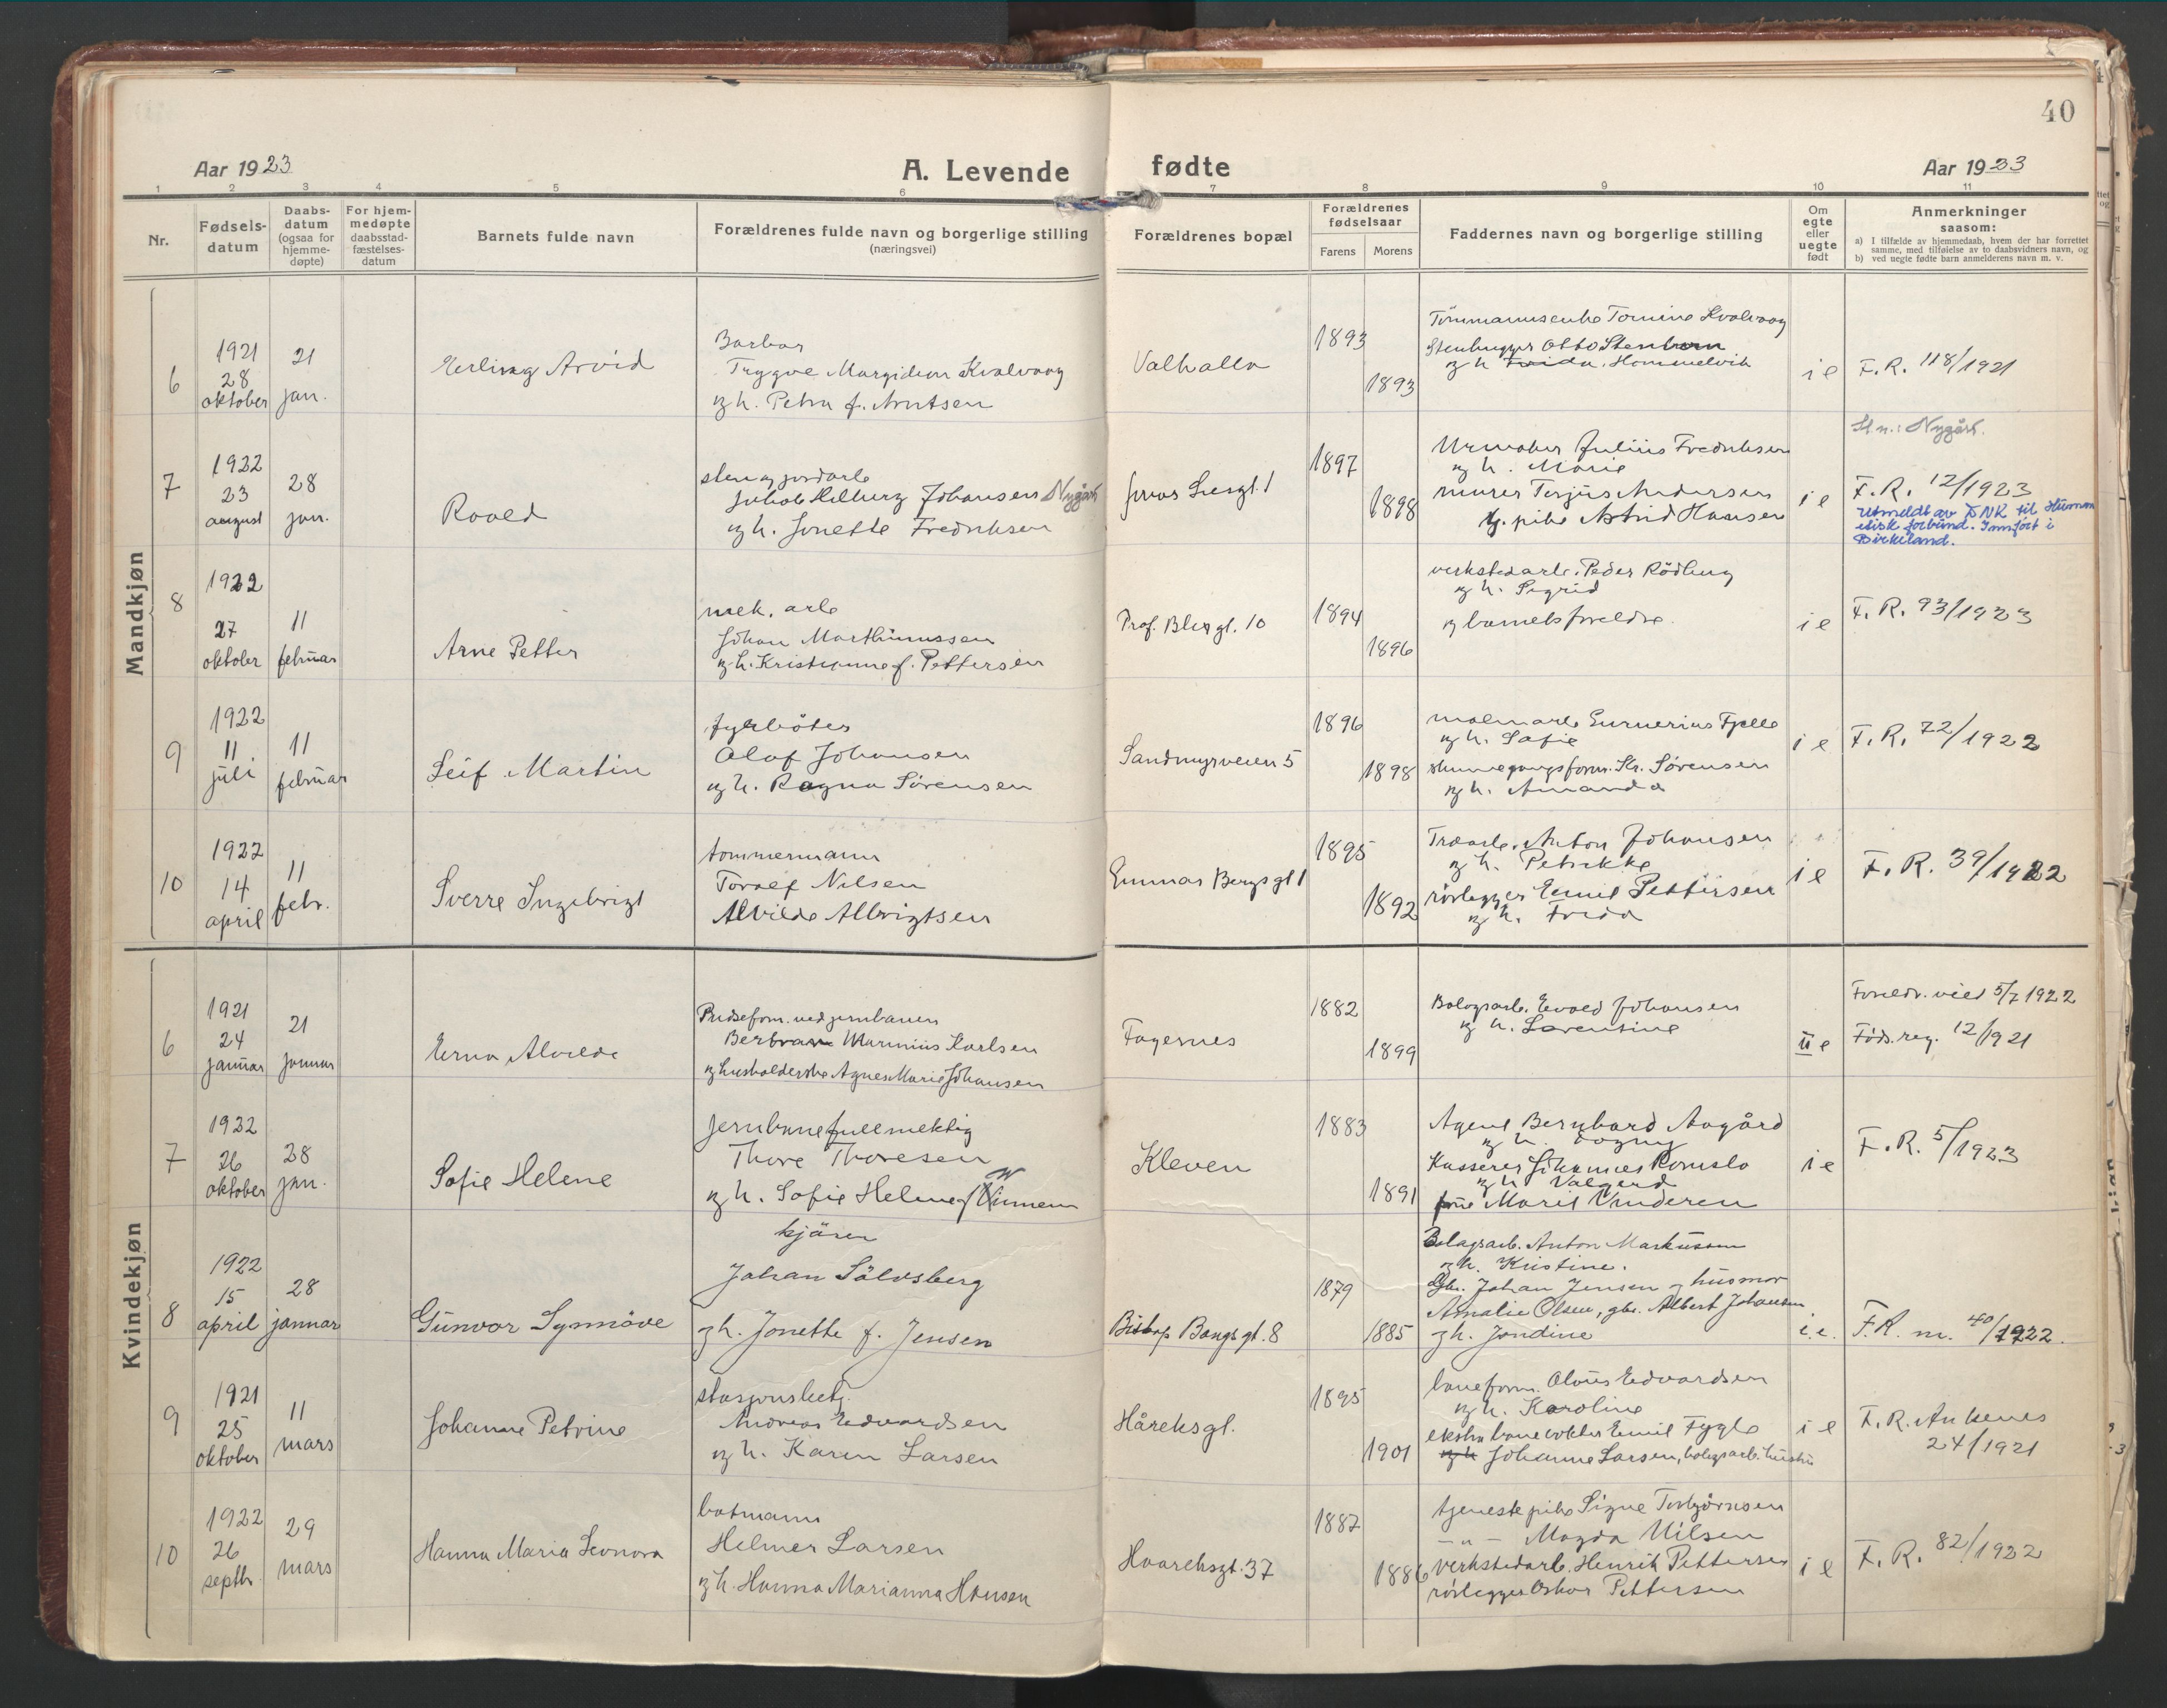 40
Aar 1923
A. Levende fødte
Aar 1923
1 2 3 4 5 6 7 8 9 10 11
Nr.
Fødsels-
datum
Daabs-
datum
(ogsaa for
hjemme-
døpte)
For hjem-
medøpte
daabsstad-
fæstelses-
datum
Barnets fulde navn
Forældrenes fulde navn og borgerlige stilling
(næringsvei)
Forældrenes bopæl
Forældrenes
fødselsaar
Farens Morens
Faddernes navn og borgerlige stilling
Om
egte
eller
uegte
født
Anmerkninger
saasom:
a) I tilfælde av hjemmedaab, hvem der har forrettet
samme, med tilføielse av to daabsvidners navn, og
b) ved uegte fødte barn anmelderens navn m. v.
Mandkjøn
6
1921
28
oktober
21
jan.
Erling Arvid
Barber
Trygve Margideus Kvalvaag
og h. Petra f. Arntsen
Valhalla
1893
1893
Tömmermannsenke Tomine Kvalvaag
Stenhugger Otto Stenborn
og h Frida, Hommelvik
i e
F.R. 118/1921
7
1922
23
august
28
jan.
Roald
sten og jordarb
Jakob Hilberg Johansen Nygård
og h. Jonette Fredriksen
1897
1898
Urmaker Julius Fredriksen
og h. Marie
murer Terjus Andersen
tj. pike Astrid Hansen
i e
Sl.n.: Nygård.
F.R. 12/1923
utmeldt av DNK til Human
etisk forbund. Innført i
Birkeland.
8
1922
27
oktober
11
februar
Arne Petter
mek. arb
Johan Marthinussen
og h. Kristianne f. Pettersen
Prof. Blixgt. 10
1894
1896
verkstedarb. Peder Rödberg
og h. Sigrid
og barnets foreldre.
i e
F.R. 93/1923
9
1922
11
juli
11
februar
Leif Martin
fyrböter
Olaf Johansen
og h. Ragna Sörensen
Sandmyrveien 5
1896
1898
malmarb Gunnerius Fjelle
og h. Sofie
Kr. Sörensen
og h. Amanda
i e
F.R. 72/1922
10
1922
14
april
11
febr.
Sverre Ingebrigt
tømmermann
Toralf Nilsen
Alvilde Albrigtsen
Emmas Bergsgt 1
1895
1892
Træarb. Anton Johansen
og h. Petrikke
rörlegger Emil Pettersen
og h. Frida
i e
F.R. 39/1922
Kvindekjøn
6
1921
24
januar
21
januar
Erna Alvilde
Pudseform. ved jernbanen
Bertran Marinius Karlsen
og husholderske Agnes Marie Johansen
Fagernes
1882
1899
Bolagsarb. Evald Johansen
og h. Lorentine
u e
Foreldr. viet 5/7 1922
Föds.reg. 12/1921
7
1922
26
oktober
28
jan.
Sofie Helene
jernbanefullmektig
Thore Thoresen
og h. Sofie Helene f Winnem
Kleven
1883
1891
Agent Bernhard Aagård
og h. Dagny
Kasserer Johannes Romslo
og h Valgerd
frue Marit Vinderen
i e
F.R. 5/1923
8
1922
15
april
28
januar
Gunvor Synnöve
kjörer
Johan Sölvsberg
og h. Jonette f. Jensen
Biskop Bangs gt. 8
1879
1885
Bolagsarb. Anton Markussen
og h. Kristine.
Gbr. Johan Jensen og husmor
Amalie Olsen, gbr. Albert Johansen
og h. Jondine
i.e.
F.R. nr. 40/1922.
9
1921
25
oktober
11
mars
Johanne Petrine
stasjonsbetj.
Andreas Edvardsen
og h. Karen Larsen
Håreksgt.
1895
1901
baneform. Olaus Edvardsen
og h. Karoline
ekstra banevokter Emil Fygle
og h Johanne Larsen, bolagsarb. hustru
i e
F.R. Ankenes
24/1921
10
1922
26
septbr.
29
mars
Hanna Maria Leonora
batmann
Helmer Larsen
og h. Hanna Marianna Hansen
Haareksgt. 37
1887
1886
tjenestepike Signe Torbjörnsen
- " - Magda Nilsen
verkstedarb. Henrik Pettersen
rörlegger Oskar Pettersen
i e
F.R. 82/1922